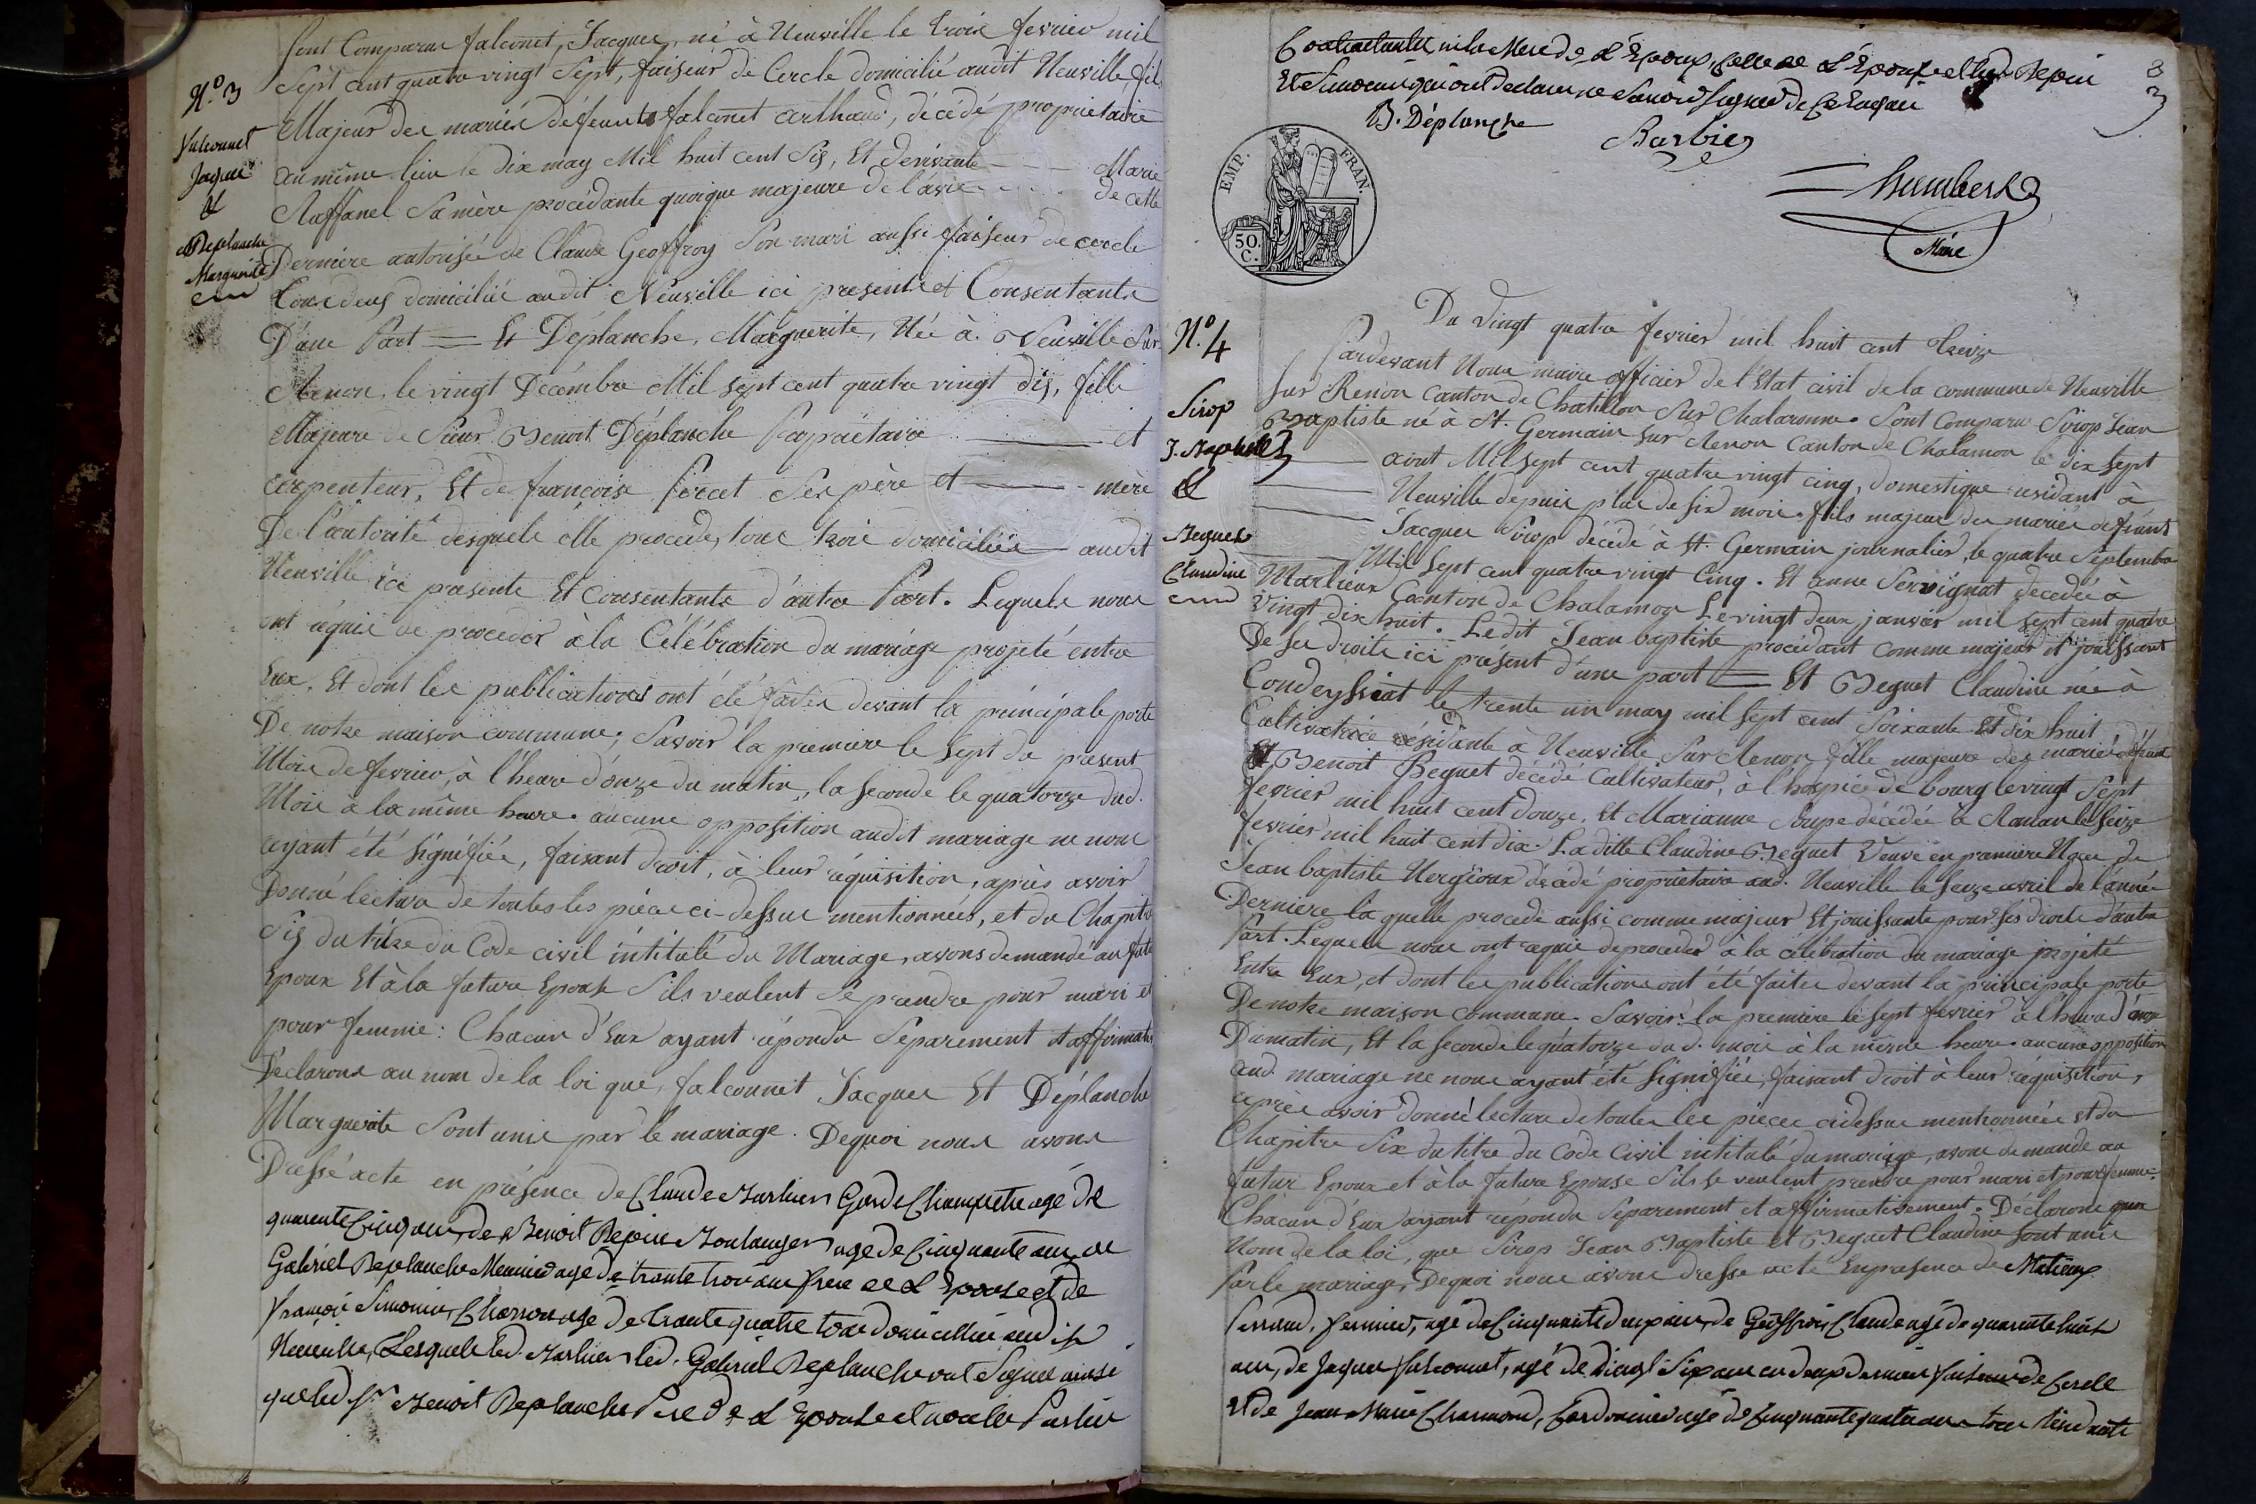 N.o 3
falconnet
Jacque
&
Deplanche
Marguerite
Sont Comparus falconet, Jacques, né à Neuville le trois fevrier mil
Sept cent quatre vingt Sept, faiseur de Cercle domicilié audit Neuville, fils
Majeur des mariés défeunts falconet arthaud, décédé propriétaire
au même lieu le dix may Mil huit cent Six, Et de vivante - Marie
Raffanel Sa mère procédante quoique majeure de l'avis - de cette
Derniere autorisée de Claude Geoffroy Son mari aussi faiseur de cercle
tous deux domiciliés audit Neuville ici presents et Consentants
D'une Part = Et Déplanche, Marguerite, Née à Neuville Sur
Renon, le vingt Décembre Mil Sept cent quatre vingt dix, fille
Majeure de Sieur Benoit Déplanche Propriétaire — et
Carpenteur, Et de françoise forcet Ses père et — mère
De l'autorité desquels elle procede, tous trois domiciliés — audit
Neuville ici presents Et Consentants d'autre Part. Lesquels nous
ont requis de proceder à la Célébration du mariage projeté entre
Eux, Et dont les publications ont été faites devant la principale porte
De notre maison commune; Savoir la premiere le Sept du present
Mois de fevrier, à l'heure d'onze du matin, la Seconde le quatorze dud.
Mois à la même heure. aucune opposition audit mariage ne nous
ayant été Signifiée, faisant droit, à leur réquisition, après avoir
Donné lecture de toutes les pièces ci-dessus mentionnées, et du Chapitre
Six du titre du Code civil intitulé du Mariage, avons demandé au futur
Epoux Et à la future Epouse S'ils veulent Se prendre pour mari et
pour femme: Chacun d'Eux ayant répondu Séparement et affirmativ
Déclarons au nom de la loi que, falconnet Jacques Et Déplanche
Marguerite Sont unis par le mariage. Dequoi nous avons
Dressé acte en présence de Claude Marlieu Garde Champetre agé de
quarente Cinq ans, de Benoit Repein Boulanger agé de Cinquante ans, de
Gabriel Deplanche Meunier agé de trante trois ans frere de L'Epouse et de
françois Simonin, Charron agé de trante quatre tous domicilliés audit
Neuville, Lesquels led. Marlieu led. Gabriel Deplanche ont Signé ainsi
que led Sr. Benoit Deplanche Pere de L'Epouse et non les Parties
3
Contractantes ni la Mere de L'Epoux, celle de L'Epouse et led. Repein
Et Simonin qui ont declaré ne Savoir Signer de Ce Enquis
B. Déplanche
Barbier
humbert
Mire
EMP. FRAN.
50.
C.
N.o 4
Sirop
J. Baptiste
&
Beguet
Claudine
Du Vingt quatre fevrier mil huit cent treize
Pardevant Nous maire officier de l'Etat civil de la commune de Neuville
Sur Renon Canton de Chatillon Sur Chalaronne. Sont Comparu Sirop Jean
Baptiste né à St. Germain Sur Renon Canton de Chalamon le dix Sept
— aout Mil Sept cent quatre vingt cinq, domestique residant à
— Neuville depuis plus de Six mois. fils majeur des mariés defeunts
— Jacques Sirop décédé à St. Germain journalier, le quatre Septembre
— Mil Sept cent quatre vingt Cinq. Et anne Servignat décédée à
Marlieux Canton de Chalamon Le vingt deux janvier mil Sept cent quatre
Vingt dix huit. Ledit Jean baptiste procédant comme majeur et jouissant
De Ses droits ici présent d'une part = Et Beguet Claudine née à
Condeyssiat le trente un may mil Sept cent Soixante Et dix huit
Cultivatrice résidante à Neuville Sur Renon fille majeure des mariés défunts
Benoit Beguet décédé Cultivateur, à l'hospice de bourg le vingt Sept
fevrier mil huit cent douze. Et Marianne décédée à Romans le Seize
fevrier mil huit cent dix. La ditte Claudine Beguet Veuve en premiere Noce de
Jean baptiste Vergioux décédé propriétaire aud. Neuville le Seize avril de l'année
Derniere la quelle procede aussi comme majeur Et jouissante pour Ses droits d'autre
Part. Lesquels nous ont requis de proceder à la célébration du mariage projeté
Entre Eux, et dont les publications ont été faites devant la principale porte
De notre maison Commune. Savoir: la premiere le Sept fevrier à l'heure d'onze
Dumatin, Et la Seconde le quatorze dud. mois à la même heure. aucune opposition
aud. mariage ne nous ayant été Signifiée, faisant droit à leur réquisition,
après avoir donné lecture de toutes les pièces cidessus mentionnées et du
Chapitre Six du titre du Code Civil intitulé du mariage, avons demandé au
futur Epoux et à la future Epouse S'ils Se veulent prendre pour mari et pour femme.
Chacun d'Eux ayant répondu Séparement et affirmativement. Déclarons au
Nom de la loi, que Sirop Jean Baptiste et Beguet Claudine Sont unis
Par le mariage, Dequoi nous avons dressé acte En presence de Mathieux
ferrand, fermier, agé de Cinquante deux ans, de Geoffroi Claude agé de quarente huit
ans, de Jacque falconnet, agé de Vingt Six ans ces deux derniers faiseurs de Cercle
et de Jean Marie Charmond, Cordonnier agé de Cinquante quatre ans tous